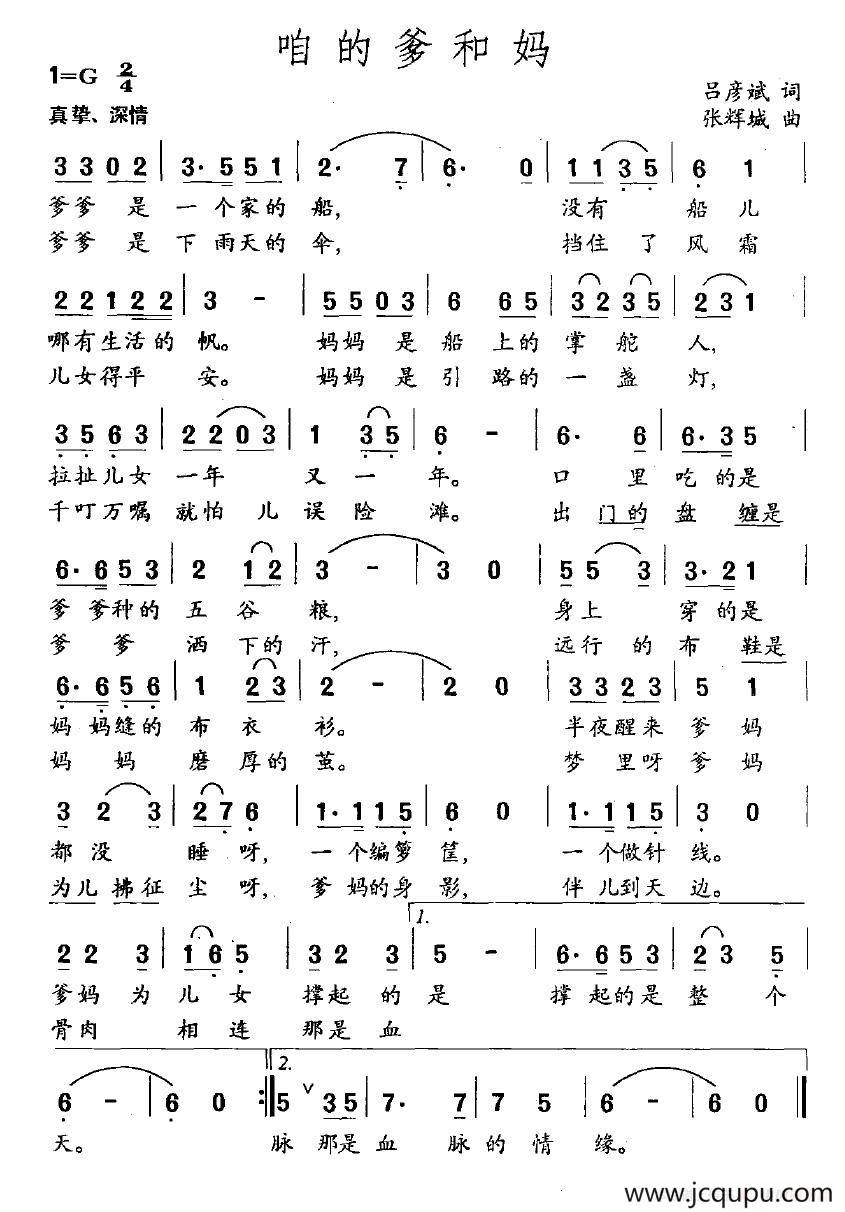 咱的爹和妈
1=G 2/4
真挚、深情
吕彦斌 词
张辉城 曲
3 3 0 2 | 3· 5 5 5 1 | 2· 7 | 6· 0 | 1 1 3 5 | 6 1
爹爹 是 一 个家的 船, 没有 船 儿
爹爹 是 下 雨天的 伞, 挡住 了 风 霜
2 2 1 2 2 | 3 - | 5 5 0 3 | 6 6 5 | 3 2 3 5 | 2 3 1
哪有生活的 帆。 妈妈 是 船 上的 掌 舵 人,
儿女得平 安。 妈妈 是 引 路的 一 盏 灯,
3 5 6 3 | 2 2 0 3 | 1 3 5 | 6 - | 6· 6 | 6· 3 5
拉扯儿女 一年 又 一 年。 口 里 吃 的是
千叮万嘱 就怕 儿 误 险 滩。 出 门的 盘 缠是
6· 6 5 3 | 2 1 2 | 3 - | 3 0 | 5 5 3 | 3· 2 1
爹 爹种的 五 谷 粮, 身上 穿 的是
爹 爹 洒 下的 汗, 远行 的 布 鞋是
6· 6 5 6 | 1 2 3 | 2 - | 2 0 | 3 3 2 3 | 5 1
妈 妈缝的 布 衣 衫。 半夜醒来 爹 妈
妈 妈 磨 厚的 茧。 梦 里呀 爹 妈
3 2 3 | 2 7 6 | 1· 1 1 5 | 6 0 | 1· 1 1 5 | 3 0
都没 睡 呀, 一 个编箩 筐, 一 个做针 线。
为儿 拂征 尘 呀, 爹 妈的身 影, 伴 儿到天 边。
1.
2 2 3 | 1 6 5 | 3 2 3 | 5 - | 6· 6 5 3 | 2 3 5
爹妈 为 儿 女 撑起 的 是 撑 起的是 整 个
骨肉 相 连 那是 血
2.
6 - | 6 0 :‖ 5 ∨ 3 5 | 7· 7 | 7 5 | 6 - | 6 0 ‖
天。 脉 那是 血 脉 的 情 缘。
www.jcqupu.com